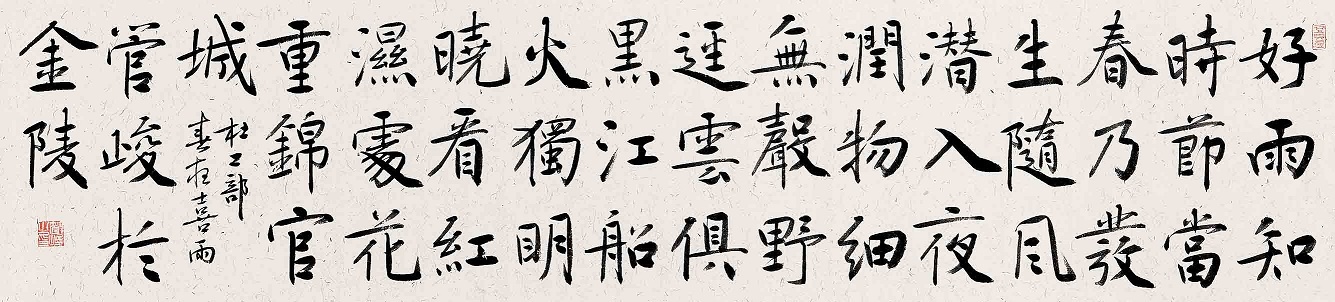 好雨知
時節當
春乃發
生隨風
潜入夜
潤物細
無聲野
逕雲俱
黑江船
火獨明
曉看紅
濕處花
重錦官
城
杜工部
春夜喜雨
管峻於
金陵